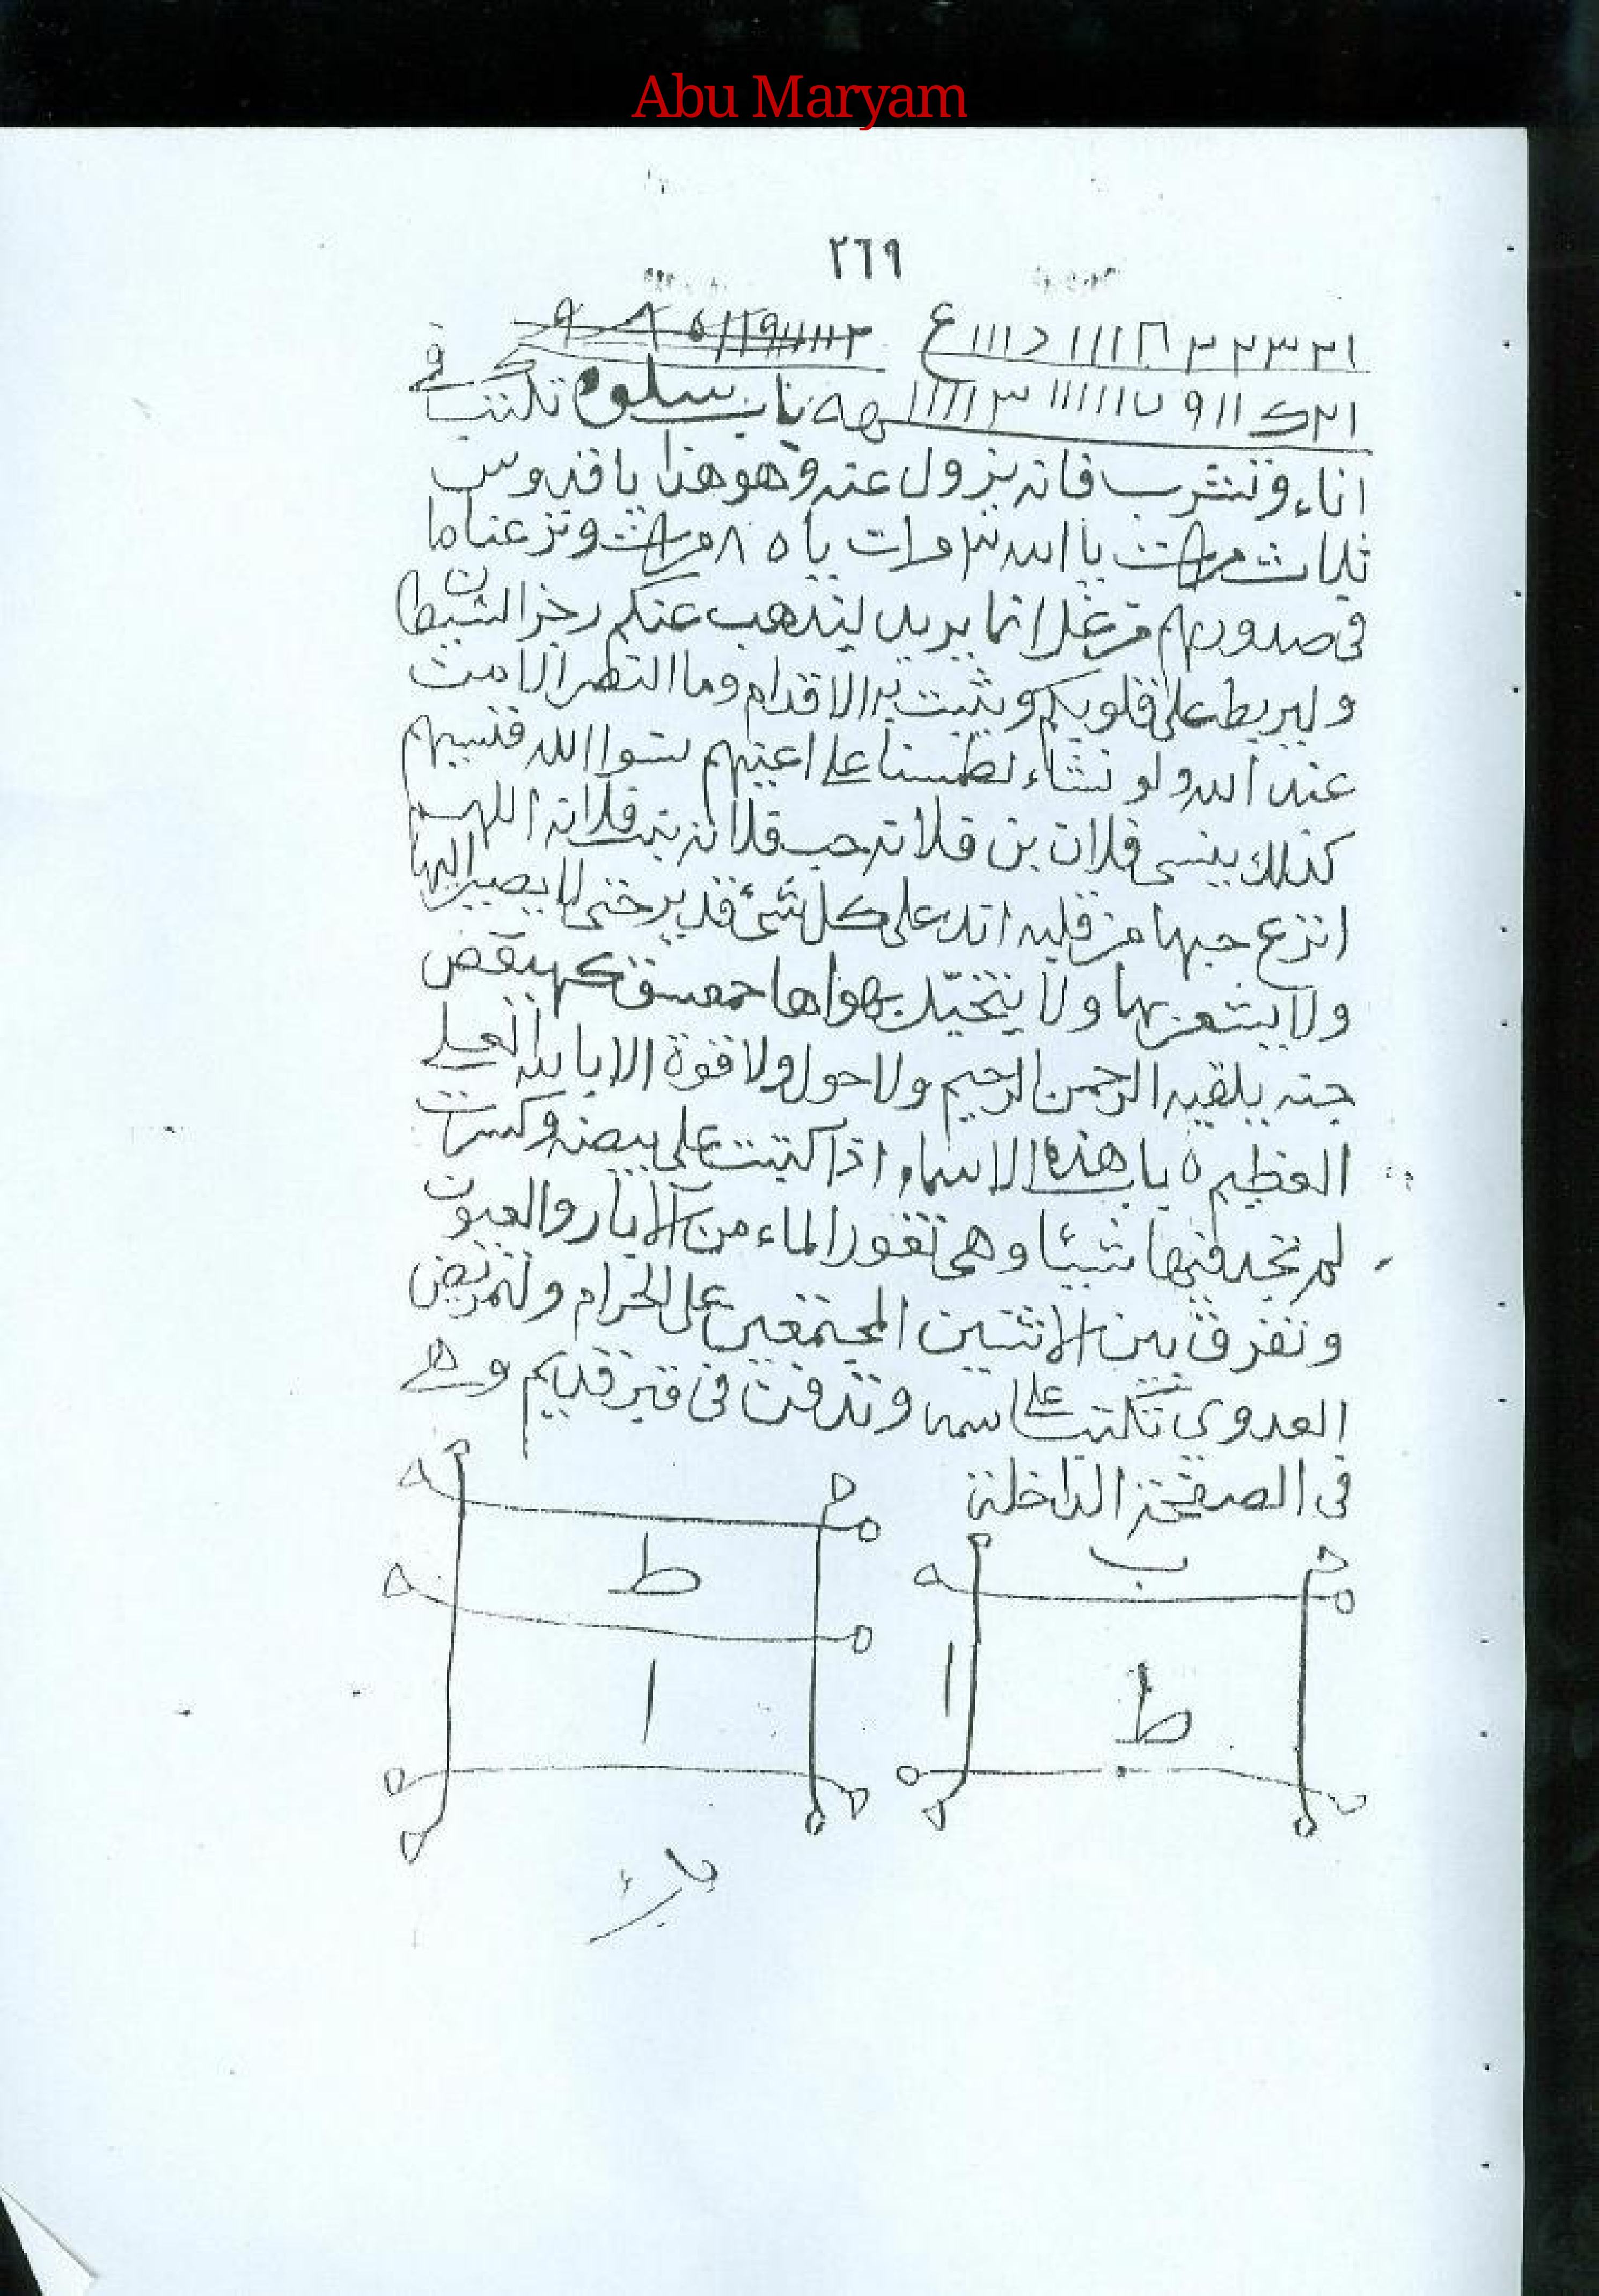 Abu Maryam
٢٦٩
باب سلوه تكتب في
اناء وتشرب فانه يزول عنه وهو هذا يا قدوس
ثلاث مرات يا الله ٣ مرات يا ٥ ٨ مرات ونزعنا ما
فى صدورهم من غل انما يريد ليذهب عنكم رجز الشيطان
وليربط على قلوبكم ويثبت به الاقدام وما النصر الا من
عند الله ولو نشاء لطمسنا على اعينهم نسوا الله فنسيهم
كذلك ينسى فلان بن فلانه حب فلانه بنت فلانه اللهم
انزع حبها من قلبه انك على كل شئ قدير حتى لا يصير اليها
ولا يشعر بها ولا يتخيل بهواها حمعسق كهيعص
الرحمن الرحيم ولا حول ولا قوة الا بالله العلي
العظيم ٥ باب هذه الاسماء اذا كتبت على بيضه وكسرت
لم تجد فيها شيئا وهى تغور الماء من الابار والعيون
وتفرق بين الاثنين المجتمعين على الحرام ولتمريض
العدوى تكتب على اسمه وتدفن فى قبر قديم وهي
فى الصفحة الداخلة
ب
ط
ط
ا
ا